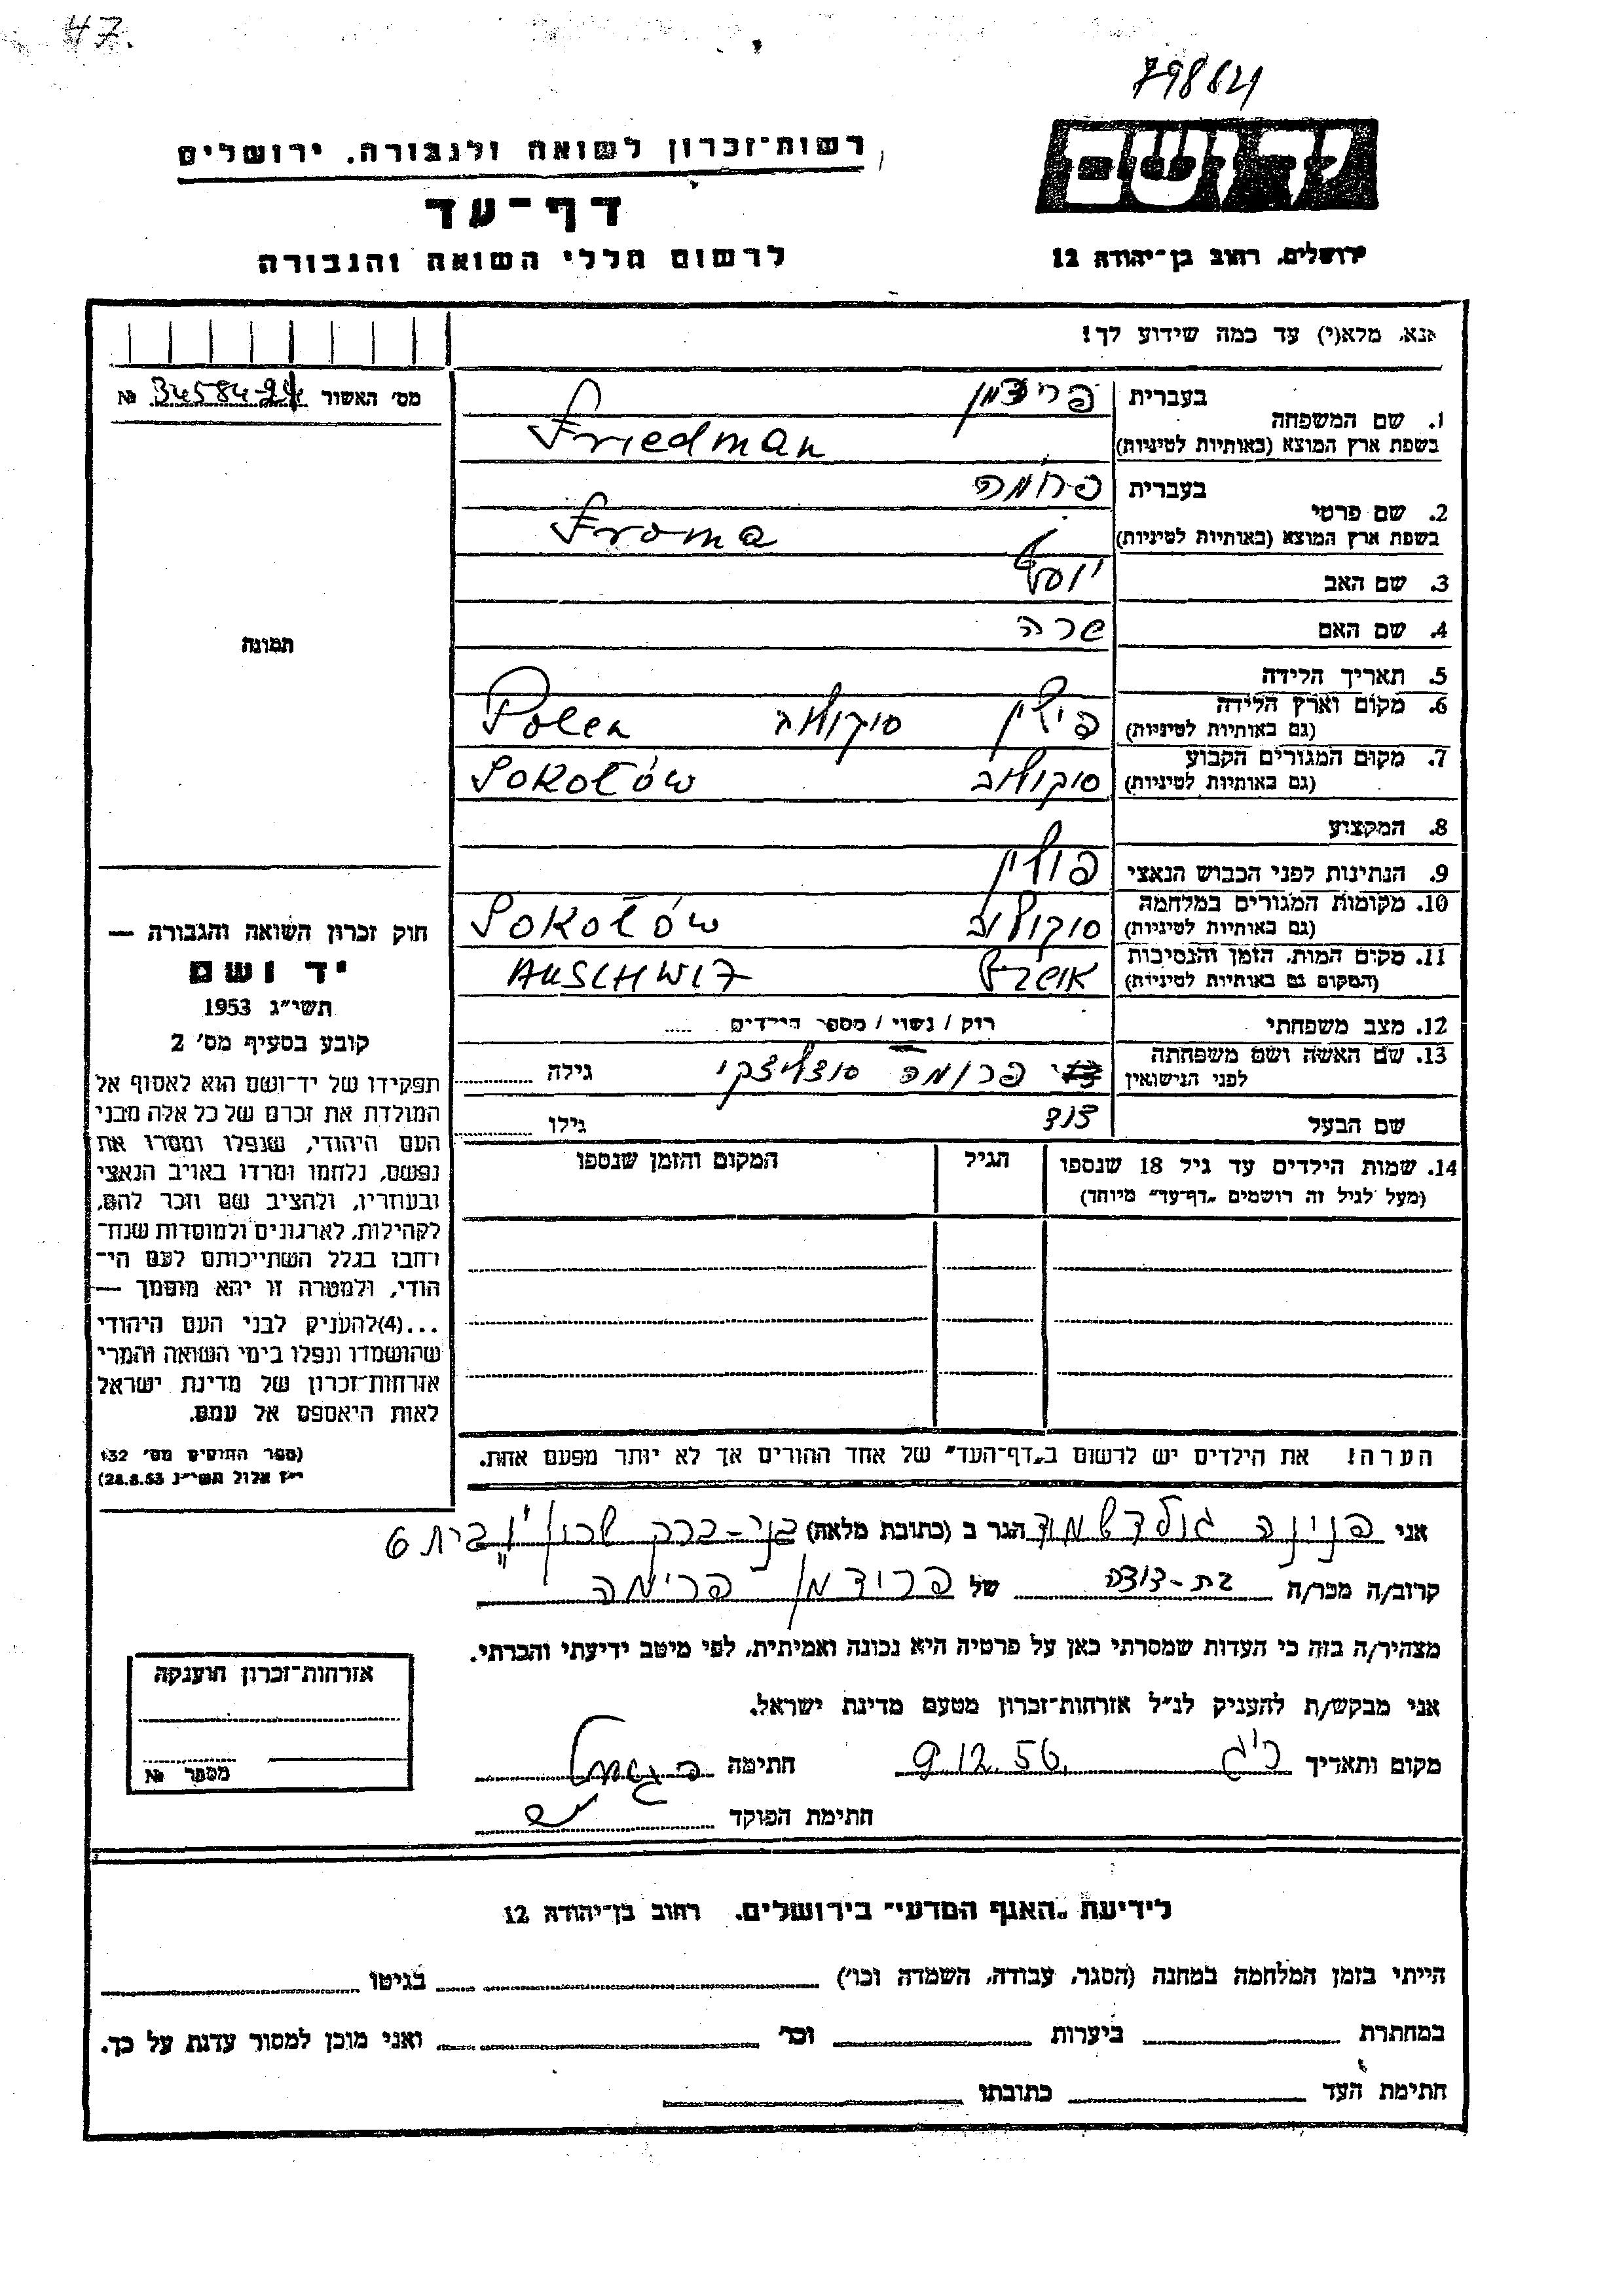 47.
79864
רשות־זכרון לשואה ולגבורה, ירושלים
דף־עד
לרשום חללי השואה והגבורה
יד ושם
ירושלים, רחוב בן־יהודה 12
אנא, מלא(י) עד כמה שידוע לך!
מס' האשור 34584-24 №
תמונה
1. שם המשפחה בעברית פרידמן
בשפת ארץ המוצא (באותיות לטיניות) Friedman
2. שם פרטי בעברית פרומה
בשפת ארץ המוצא (באותיות לטיניות) Froma
3. שם האב יוסף
4. שם האם שרה
5. תאריך הלידה
6. מקום וארץ הלידה (גם באותיות לטיניות) פולין סוקולוב Polen
7. מקום המגורים הקבוע (גם באותיות לטיניות) סוקולוב Sokołów
8. המקצוע
9. הנתינות לפני הכבוש הנאצי פולין
10. מקומות המגורים במלחמה (גם באותיות לטיניות) סוקולוב Sokołów
11. מקום המות, הזמן והנסיבות (המקום גם באותיות לטיניות) אושביץ AUSCHWIZ
12. מצב משפחתי רוק / נשוי / מספר הילדים .....
13. שם האשה ושם משפחתה לפני הנישואין פרומה גילה
שם הבעל דוד גילו
14. שמות הילדים עד גיל 18 שנספו (מעל לגיל זה רושמים „דף־עד" מיוחד) הגיל המקום והזמן שנספו
חוק זכרון השואה והגבורה —
יד ושם
תשי"ג 1953
קובע בסעיף מס' 2
תפקידו של יד־ושם הוא לאסוף אל
המולדת את זכרם של כל אלה מבני
העם היהודי, שנפלו ומסרו את
נפשם, נלחמו ומרדו באויב הנאצי
ובעוזריו, ולהציב שם וזכר להם,
לקהילות, לארגונים ולמוסדות שנח־
רבו בגלל השתייכותם לעם הי־
הודי, ולמטרה זו יהא מוסמך —
...(4)להעניק לבני העם היהודי
שהושמדו ונפלו בימי השואה והמרי
אזרחות־זכרון של מדינת ישראל
לאות היאספם אל עמם.
(ספר החוקים מס' 132
י"ז אלול תשי"ג 28.8.53)
הערה! את הילדים יש לרשום ב„דף־העד" של אחד ההורים אך לא יותר מפעם אחת.
אני פנינה גולדשמיד הגר ב (כתובת מלאה) בני-ברק שכון ו' בית 6
קרוב/ה מכר/ה בת-דודה של פרידמן פרימה
מצהיר/ה בזה כי העדות שמסרתי כאן על פרטיה היא נכונה ואמיתית, לפי מיטב ידיעתי והכרתי.
אני מבקש/ת להעניק לנ"ל אזרחות־זכרון מטעם מדינת ישראל.
מקום ותאריך 9.12.56 חתימה
חתימת הפוקד
אזרחות־זכרון הוענקה
מספר №
לידיעת „האגף המדעי" בירושלים, רחוב בן־יהודה 12
הייתי בזמן המלחמה במחנה (הסגר, עבודה, השמדה וכו') בגיטו
במחתרת ביערות וכו' ואני מוכן למסור עדות על כך.
חתימת העד כתובתו